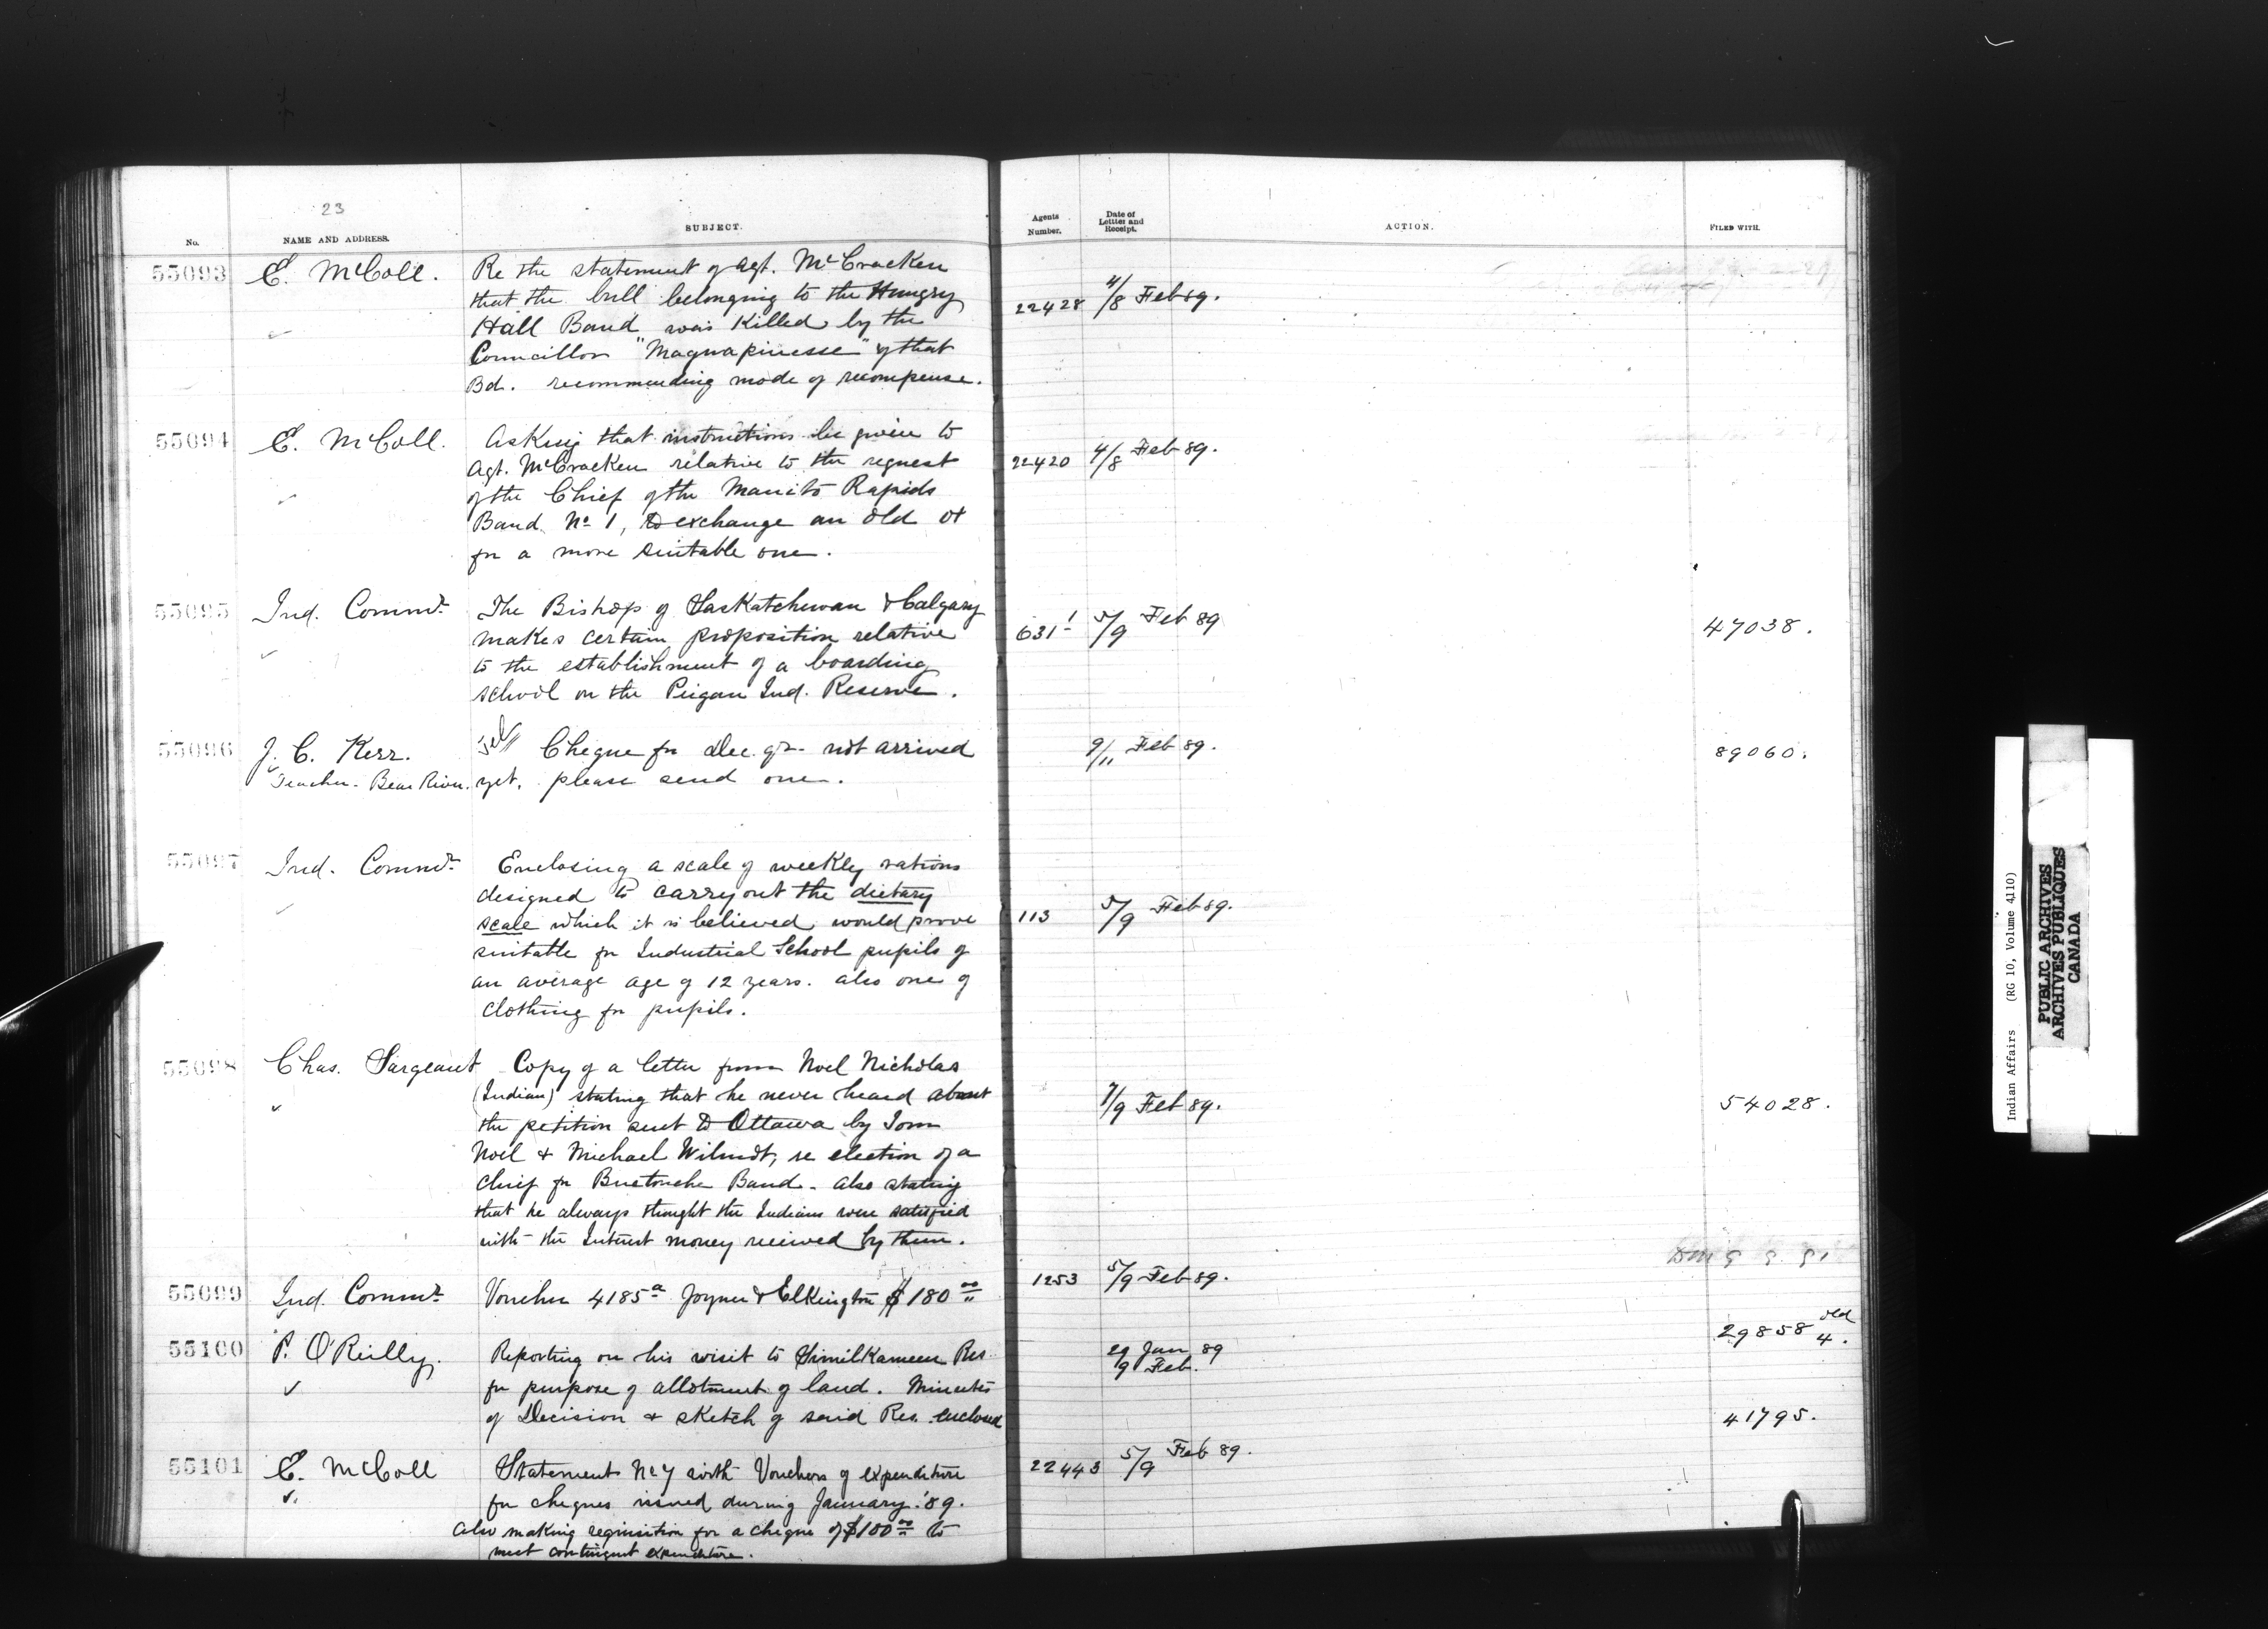 23
No.
NAME AND ADDRESS.
SUBJECT.
Agents Number.
Date of Lettter and Receipt.
ACTION.
FILED WITH.
55093 E. McColl. Re the statement of Agt. McCracken
that the bull belonging to the Hungry
Hall Band was killed by the
Councillor "Magwapinesse" of that
Bd. recommending mode of recompense.
22428 4/8 Feb 89.
55094 E. McColl. Asking that instructions be given to
Agt. McCracken relative to the request
of the Chief of the Manito Rapids
Band No 1, to exchange an old ox
for a more suitable one.
22420 4/8 Feb 89.
55095 Ind. Commr. The Bishop of Saskatchewan & Calgary
makes certain proposition relative
to the establishment of a boarding
school on the Peigan Ind. Reserve.
631 1 5/9 Feb 89
47038.
55096 J. C. Kerr. Cheque for Dec. qr. not arrived
Teacher. Bear River. yet. please send one.
9/11 Feb 89.
89060.
55097 Ind. Commr. Enclosing a scale of weekly rations
designed to carry out the dietary
scale which it is believed would prove
suitable for Industrial School pupils of
an average age of 12 years. also one of
clothing for pupils.
113 5/9 Feb 89.
55098 Chas. Sargeant Copy of a letter from Noel Nicholas
(Indian) stating that he never heard about
the petition sent to Ottawa by Tom
Noel & Michael Wilmot, re election of a
Chief for Buctouche Band. also stating
that he always thought the Indians were satisfied
with the Interest money received by them.
7/9 Feb 89.
54028.
55099 Ind. Commr. Voucher 4185a Joyner & Elkington $180 00
1253 5/9 Feb 89.
29858 old 4.
55100 P. O'Reilly. Reporting on his visit to Similkameen Res.
for purpose of allotment of land. Minutes
of Decision & sketch of said Res. enclosed
29 Jan 89
9 Feb.
41795.
55101 E. McColl Statement No 7 with Vouchers of expenditure
for cheques issued during January '89.
also making requisition for a cheque of $100 00 to
meet contingent expenditure.
22443 5/9 Feb 89.
Indian Affairs (RG 10, Volume 4,110)
PUBLIC ARCHIVES
ARCHIVES PUBLIQUES
CANADA